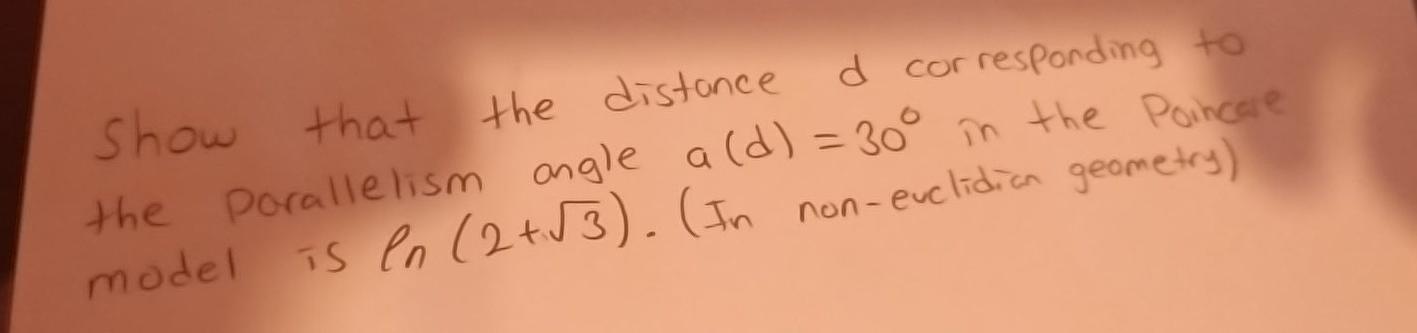 Show that the distance d corresponding to
the parallelism angle a(d) = 30° in the Poincare
model is ln (2+√3). (In non-euclidian geometry)